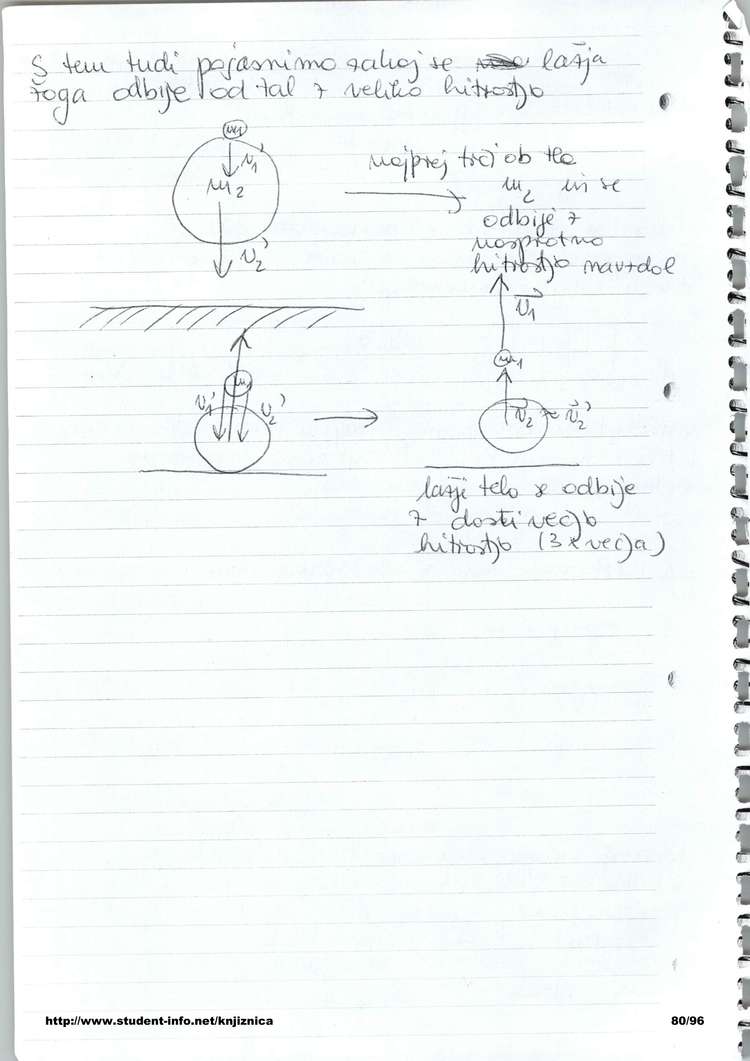 S tem tudi pojasnimo zakaj se lažja
žoga odbije od tal z veliko hitrostjo
m1
v1'
m2
v2'
najprej trči ob tla
m2 in se
odbije z
nasprotno
hitrostjo navzdol
v1
m1
m
v1'
v2'
v2 ≈ v2'
lažji telo se odbije
z dosti večjo
hitrostjo (3x večja)
http://www.student-info.net/knjiznica
80/96